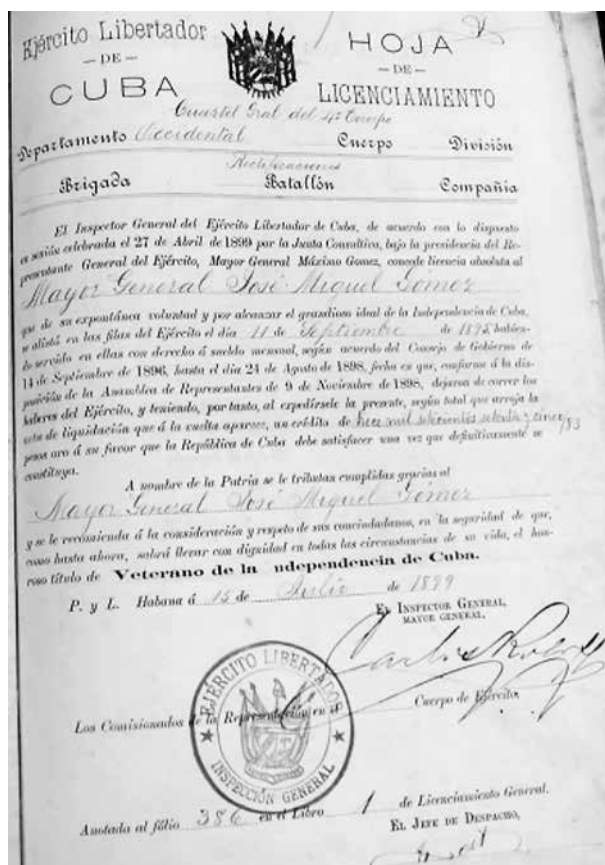 Ejército Libertador
— DE —
CUBA
HOJA
— DE —
LICENCIAMIENTO
Cuartel Gral del 4º Cuerpo
Departamento Occidental Cuerpo División
Rectificaciones
Brigada Batallón Compañía
El Inspector General del Ejército Libertador de Cuba, de acuerdo con lo dispuesto
en sesión celebrada el 27 de Abril de 1899 por la Junta Consultiva, bajo la presidencia del Re-
presentante General del Ejército, Mayor General Máximo Gomez, concede licencia absoluta al
Mayor General José Miguel Gómez
que de su expontánea voluntad y por alcanzar el grandioso ideal de la Independencia de Cuba,
se alistó en las filas del Ejército el día 11 de Septiembre de 1895, habien-
do servido en ellas con derecho á sueldo mensual, según acuerdo del Consejo de Gobierno de
14 de Septiembre de 1896, hasta el día 24 de Agosto de 1898, fecha en que, conforme á la dis-
posición de la Asamblea de Representantes de 9 de Noviembre de 1898, dejaron de correr los
haberes del Ejército, y teniendo, por tanto, al expedírsele la presente, según total que arroja la
nota de liquidación que á la vuelta aparece, un crédito de trece mil setecientos setenta y cinco /83
pesos oro á su favor que la República de Cuba debe satisfacer una vez que definitivamente se
constituya.
A nombre de la Patria se le tributan cumplidas gracias al
Mayor General José Miguel Gómez
y se le recomienda á la consideración y respeto de sus conciudadanos, en la seguridad de que,
como hasta ahora, sabrá llevar con dignidad en todas las circunstancias de su vida, el hon-
roso título de Veterano de la ndependencia de Cuba.
P. y L. Habana á 15 de Julio de 1899
EL INSPECTOR GENERAL,
MAYOR GENERAL.
Carlos Roloff
EJÉRCITO LIBERTADOR
INSPECCIÓN GENERAL
Los Comisionados de la Representación en el Cuerpo de Ejército,
Anotado al fólio 386 en el Libro 1 de Licenciamiento General.
EL JEFE DE DESPACHO,